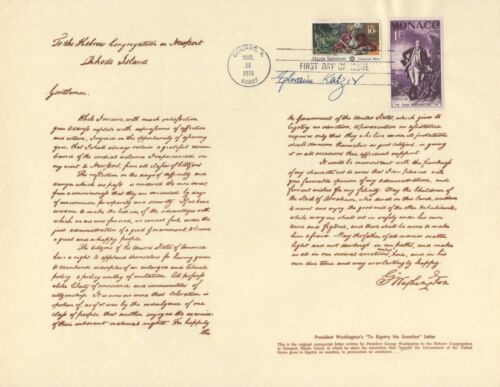 To the Hebrew Congregation in Newport
Rhode Island
Gentlemen.
While I receive, with much satisfaction,
your Address replete with expressions of affection
and esteem, I rejoice in the opportunity of assuring
you, that I shall always retain a grateful remem-
brance of the cordial welcome I experienced in
my visit to Newport, from all classes of Citizens.
The reflection on the days of difficulty and
danger which are past is rendered the more sweet
from a consciousness that they are succeeded by days
of uncommon prosperity and security. If we have
wisdom to make the best use of the advantages with
which we are now favored, we cannot fail, under the
just administration of a good Government to become
a great and a happy people.
The citizens of the United States of America
have a right to applaud themselves for having given
to mankind examples of an enlarged and liberal
policy a policy worthy of imitation. All possess
alike liberty of conscience and immunities of
citizenship. It is now no more that toleration is
spoken of, as if it was by the indulgence of one
class of people, that another enjoyed the exercise
of their inherent natural rights. For happily
the
CHICAGO, IL
MAR.
25
1975
60607
FIRST DAY OF ISSUE
Haym Salomon
10c
MONACO
1F
Ephraim Katzir
the Government of the United States, which gives to
bigotry no sanction, to persecution no assistance
requires only that they who live under its protection
should demean themselves as good citizens, in giving
it on all occasions their effectual support.
It would be inconsistent with the frankness of
my character not to avow that I am pleased with
your favorable opinion of my administration, and
fervent wishes for my felicity. May the Children of
the Stock of Abraham, who dwell in this land, continue
to merit and enjoy the good will of the other Inhabitants,
while every one shall sit in safety under his own
vine and figtree, and there shall be none to make
him afraid. May the father of all mercies scatter
light and not darkness in our paths, and make
us all in our several vocations here, and in his
own due time and way everlastingly happy.
G. Washington
President Washington's "To Bigotry No Sanction" Letter
This is the original manuscript letter written by President George Washington to the Hebrew Congregation
in Newport, Rhode Island, in which he states his conviction that "happily the Government of the United
States gives to bigotry no sanction, to persecution no assistance."